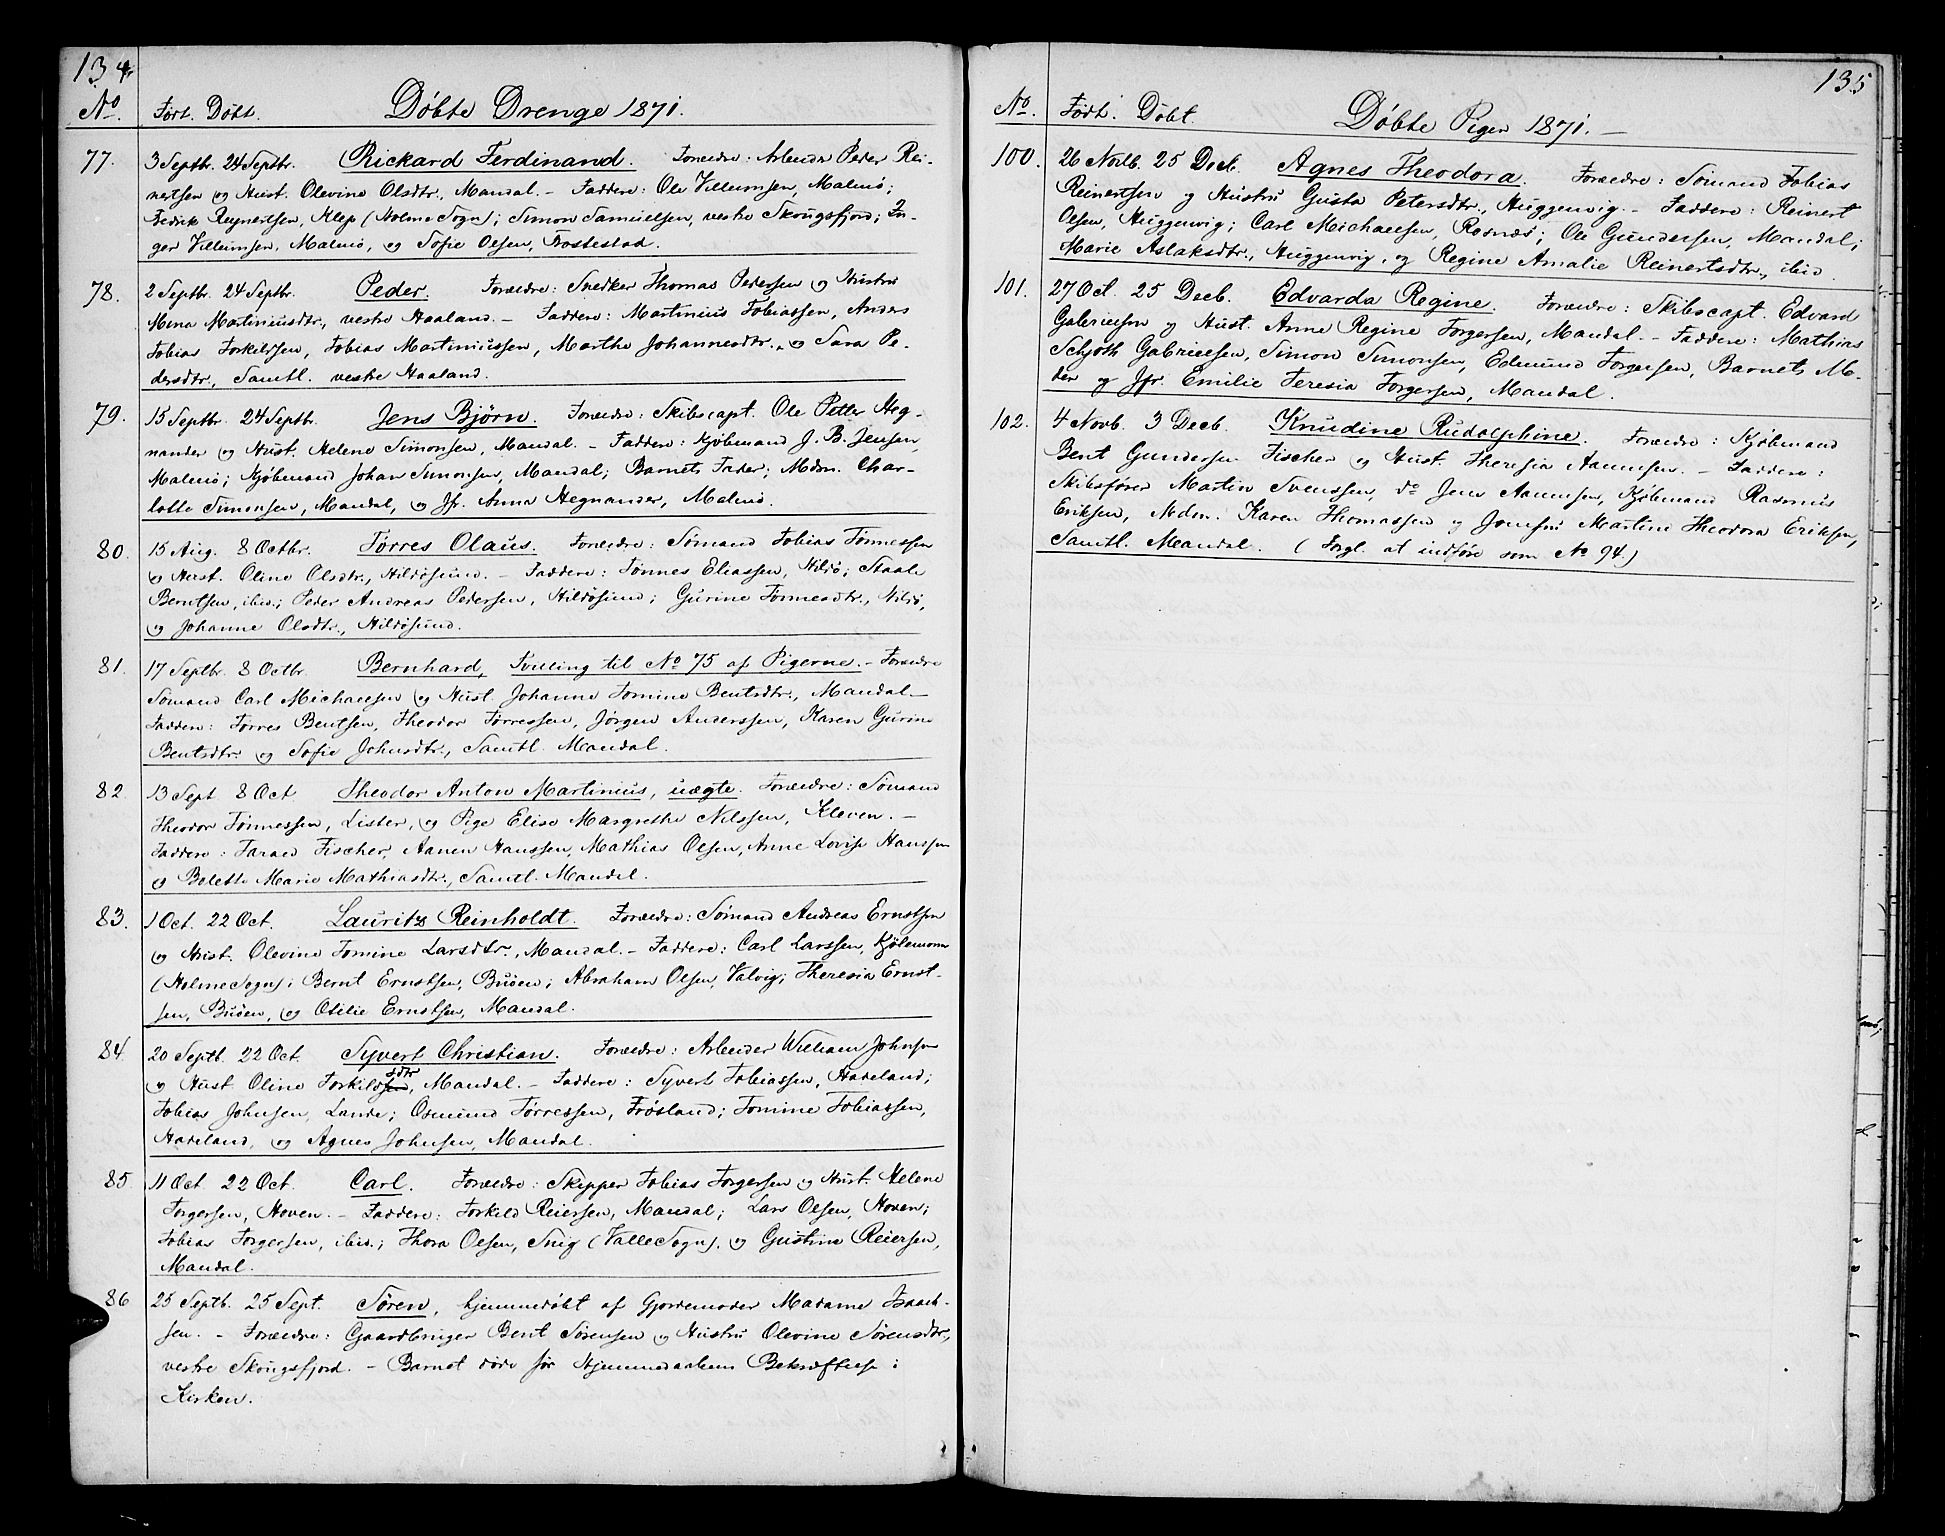 134.
No. Født. Døbt. Døbte Drenge 1871.
77. 3 Septbr. 24 Septbr. Rickard Ferdinand. Forældre: Arbeider Peder Rei-
nertsen og Hust. Olevine Olsdtr., Mandal. – Faddere: Ole Villumsen, Malmø;
Fredrik Reynertsen, Klep (Holme Sogn); Simon Samuelsen, vestre Skougsfjord; In-
ger Villumsen, Malmø, og Sofie Olsen, Tostestad.
78. 2 Septbr. 24 Septbr. Peder. Forældre: Snedker Thomas Pedersen og Hustru
Mena Martiniusdtr., vestre Haaland. – Faddere: Martinius Tobiassen, Anders
Tobias Torkildsen, Tobias Martiniussen, Marthe Johannesdtr., og Sara Pe-
dersdtr., Samtl. vestre Haaland.
79. 15 Septbr. 24 Septbr. Jens Bjørn. Forældre: Skibscapt. Ole Petter Heg-
nander og Hust. Helene Simonsen, Mandal. – Faddere: Kjøbmand J. B. Jensen,
Malmø; Kjøbmand Johan Simonsen, Mandal; Barnets Fader; Mdm. Char-
lotte Simonsen, Mandal, og Jfr. Anna Hegnander, Malmø.
80. 15 Aug. 8 Octbr. Tørres Olaus. Forældre: Sømand Tobias Tønnessen
og Hust. Oline Olsdtr., Hildøsund. – Faddere: Tønnes Eliassen, Hilø; Staale
Berntsen, ibid.; Peder Andreas Pedersen, Hildøsund; Gurine Tønnesdtr., Hilø,
og Johanne Olsdtr., Hildøsund.
81. 17 Septbr. 8 Octbr. Bernhard, Tvilling til No 75 af Pigerne. – Forældre
Sømand Carl Michaelsen og Hust. Johanne Tomine Bentsdtr., Mandal –
Faddere: Tørres Bentsen, Theodor Tørressen, Jørgen Anderssen, Karen Gurine
Bentsdtr. og Sofie Johnsdtr., Samtl. Mandal.
82. 13 Sept 8 Oct Theodor Anton Martinius, uægte. Forældre: Sømand
Theodor Tønnessen, Lister, og Pige Elise Margrethe Nilssen, Kleven. –
Faddere: Tarald Fischer, Aanen Hanssen, Mathias Olsen, Anne Lovise Hanssen
og Bolette Marie Mathiasdtr., Samtl. Mandal.
83. 1 Oct. 22 Oct. Lauritz Reinholdt. Forældre: Sømand Andreas Ernstsen
og Hust. Olevine Tomine Larsdtr., Mandal. – Faddere: Carl Larssen, Kjølemoen
(Holme Sogn); Bernt Ernstsen, Buøen; Abraham Olsen, Valvig; Theresia Ernst-
sen, Buøen, og Otilie Ernstsen, Mandal.
84. 20 Septb. 22 Oct. Syvert Christian. Forældre: Arbeider William Johnsen
og Hust Oline Torkildsdtr, Mandal. – Faddere: Syvert Tobiassen, Haaeland;
Tobias Johnsen, Lande; Osmund Tørressen, Frøsland; Tomine Tobiassen,
Haaeland, og Agnes Johnsen, Mandal.
85. 11 Oct. 22 Oct. Carl. Forældre: Skipper Tobias Torgersen og Hust. Helene
Torgersen, Hoven. – Faddere: Torkild Reiersen, Mandal; Lars Olsen, Hoven;
Tobias Torgersen, ibid.; Thora Olsen, Snig (Valle Sogn), og Gustine Reiersen,
Mandal.
86 25 Septb. 25 Sept. Søren, hjemmedøbt af Gjordemoder Madame Isaach-
sen. – Forældre: Gaardbruger Bent Sørensen og Hustru Olevine Sørensdtr.,
vestre Skougsfjord. – Barnet døde før Hjemmedaabens Bekræftelse i
Kirken.
135
No. Født. Døbt. Døbte Piger 1871. –
100. 26 Novb. 25 Decb. Agnes Theodora. Forældre: Sømand Tobias
Reinertsen og Hustru Gusta Petersdtr., Huggenvig. – Faddere: Reinert
Olsen, Huggenvig; Carl Michaelsen, Rosnæs; Ole Gundersen, Mandal;
Marie Aslaksdtr., Huggenvig, og Regine Amalie Reinertsdtr., ibid.
101. 27 Oct. 25 Decb. Edvarda Regine. Forældre: Skibscapt. Edvard
Gabrielsen og Hust. Anne Regine Torgersen, Mandal. – Faddere: Mathias
Schjøth Gabrielsen, Simon Simonsen, Edmund Torgersen, Barnets Mo-
der og Jfr. Emilie Teresia Torgersen, Mandal.
102. 4 Novb. 3 Decb. Knudine Rudolphine. Forældre: Kjøbmand
Bent Gundersen Fischer og Hust. Theresia Aanensen. – Faddere:
Skibsfører Martin Svenssen, do Jens Aanensen, Kjøbmand Rasmus
Eriksen, Mdm. Karen Thomassen og Jomfru Martine Theodora Eriksen,
Samtl. Mandal. (Forgl. at indføre som No 94.)